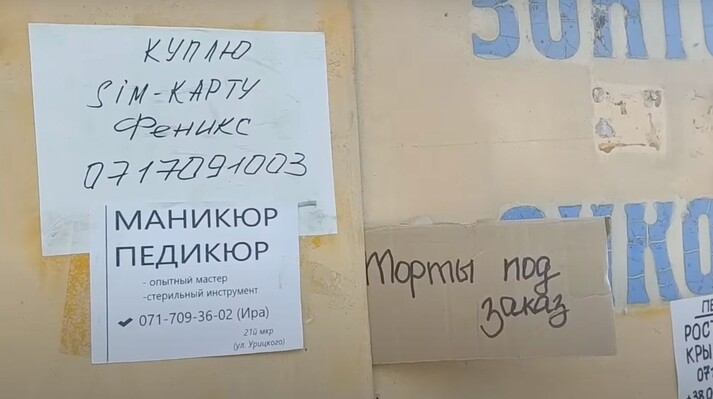 КУПЛЮ
SIM-КАРТУ
Феникс
0717091003
МАНИКЮР
ПЕДИКЮР
- опытный мастер
-стерильный инструмент
071-709-36-02 (Ира)
21й мкр
(ул. Урицкого)
Торты под
заказ